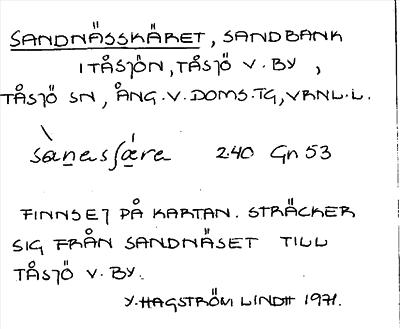 SANDNÄSSKÄRET, SANDBANK
I TÅSJÖN, TÅSJÖ V. BY,
TÅSJÖ SN, ÅNG. V. DOMS. TG, VRNL. L.
2.40 Gn 53
FINNS EJ PÅ KARTAN. STRÄCKER
SIG FRÅN SANDNÄSET TILL
TÅSJÖ V. BY.
Y. HAGSTRÖM LINDH 1971.